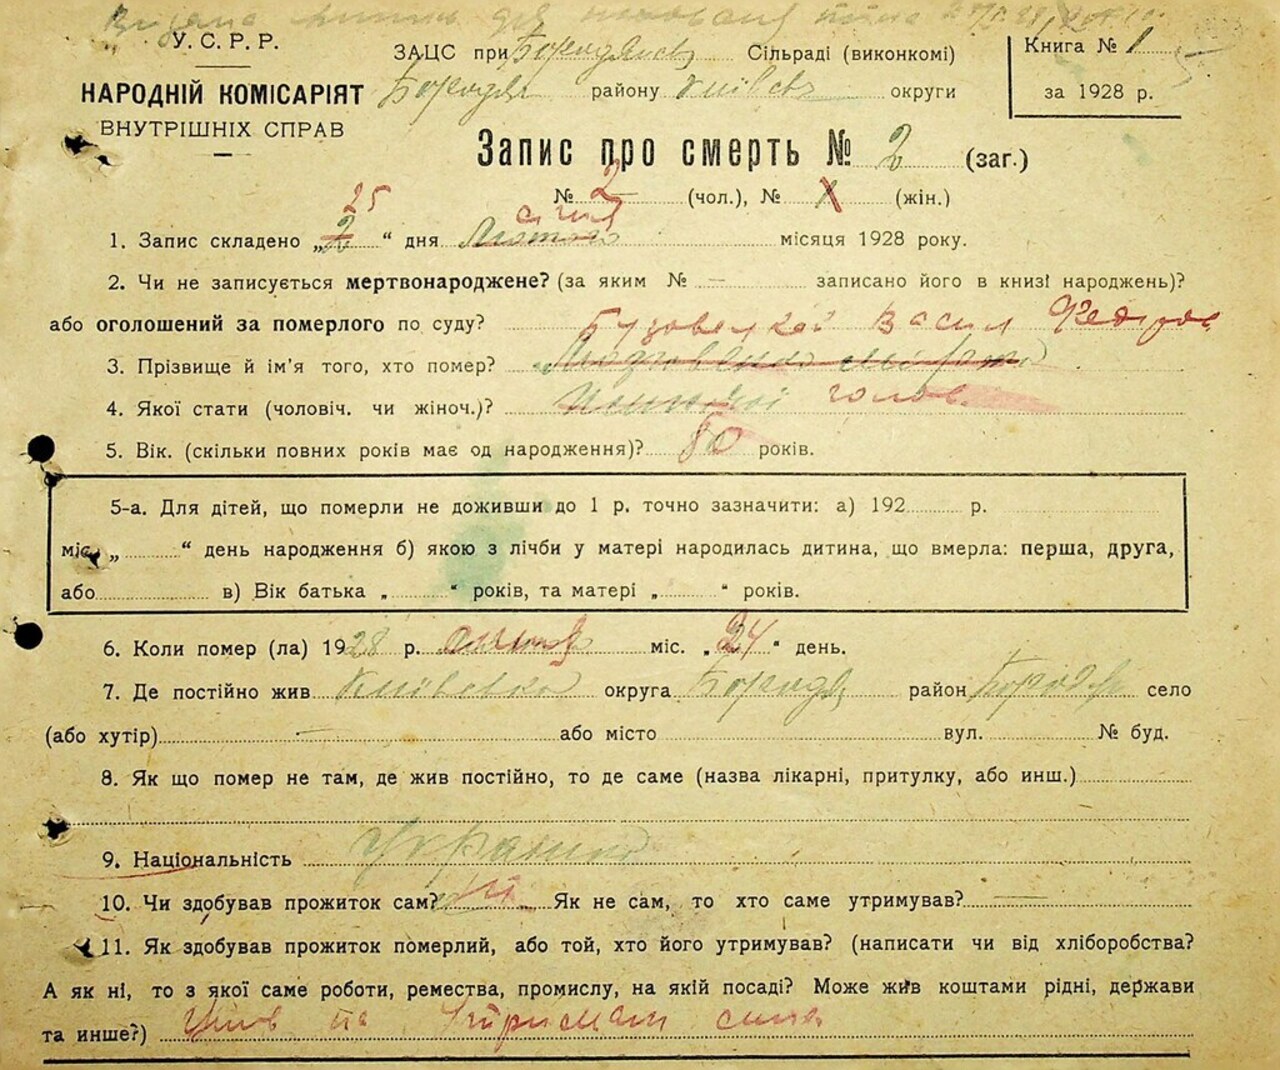 У.С.Р.Р.
НАРОДНІЙ КОМІСАРІЯТ
ВНУТРІШНІХ СПРАВ
ЗАЦС при Бородянськ Сільраді (виконкомі)
Бородян району Київськ округи
Книга № 1
за 1928 р.
Запис про смерть № 2 (заг.)
№ 2 (чол.), № 1 (жін.)
25 січня
1. Запис складено „2“ дня Лютого місяця 1928 року.
2. Чи не записується мертвонароджене? (за яким № — записано його в книзі народжень)?
або оголошений за померлого по суду? Василь
3. Прізвище й ім'я того, хто помер?
4. Якої стати (чоловіч. чи жіноч.)? голов.
5. Вік. (скільки повних років має од народження)? 80 років.
5-а. Для дітей, що померли не доживши до 1 р. точно зазначити: а) 192 р.
міс. „ “ день народження б) якою з лічби у матері народилась дитина, що вмерла: перша, друга,
або в) Вік батька „ “ років, та матері „ “ років.
6. Коли помер (ла) 1928 р. січня міс. „24“ день.
7. Де постійно жив Київська округа Бородян район Бородян село
(або хутір) — або місто вул. № буд.
8. Як що помер не там, де жив постійно, то де саме (назва лікарні, притулку, або инш.)
9. Національність
10. Чи здобував прожиток сам? ні Як не сам, то хто саме утримував? —
11. Як здобував прожиток померлий, або той, хто його утримував? (написати чи від хліборобства?
А як ні, то з якої саме роботи, ремества, промислу, на якій посаді? Може жив коштами рідні, держави
та инше?) жив на утриманні сина